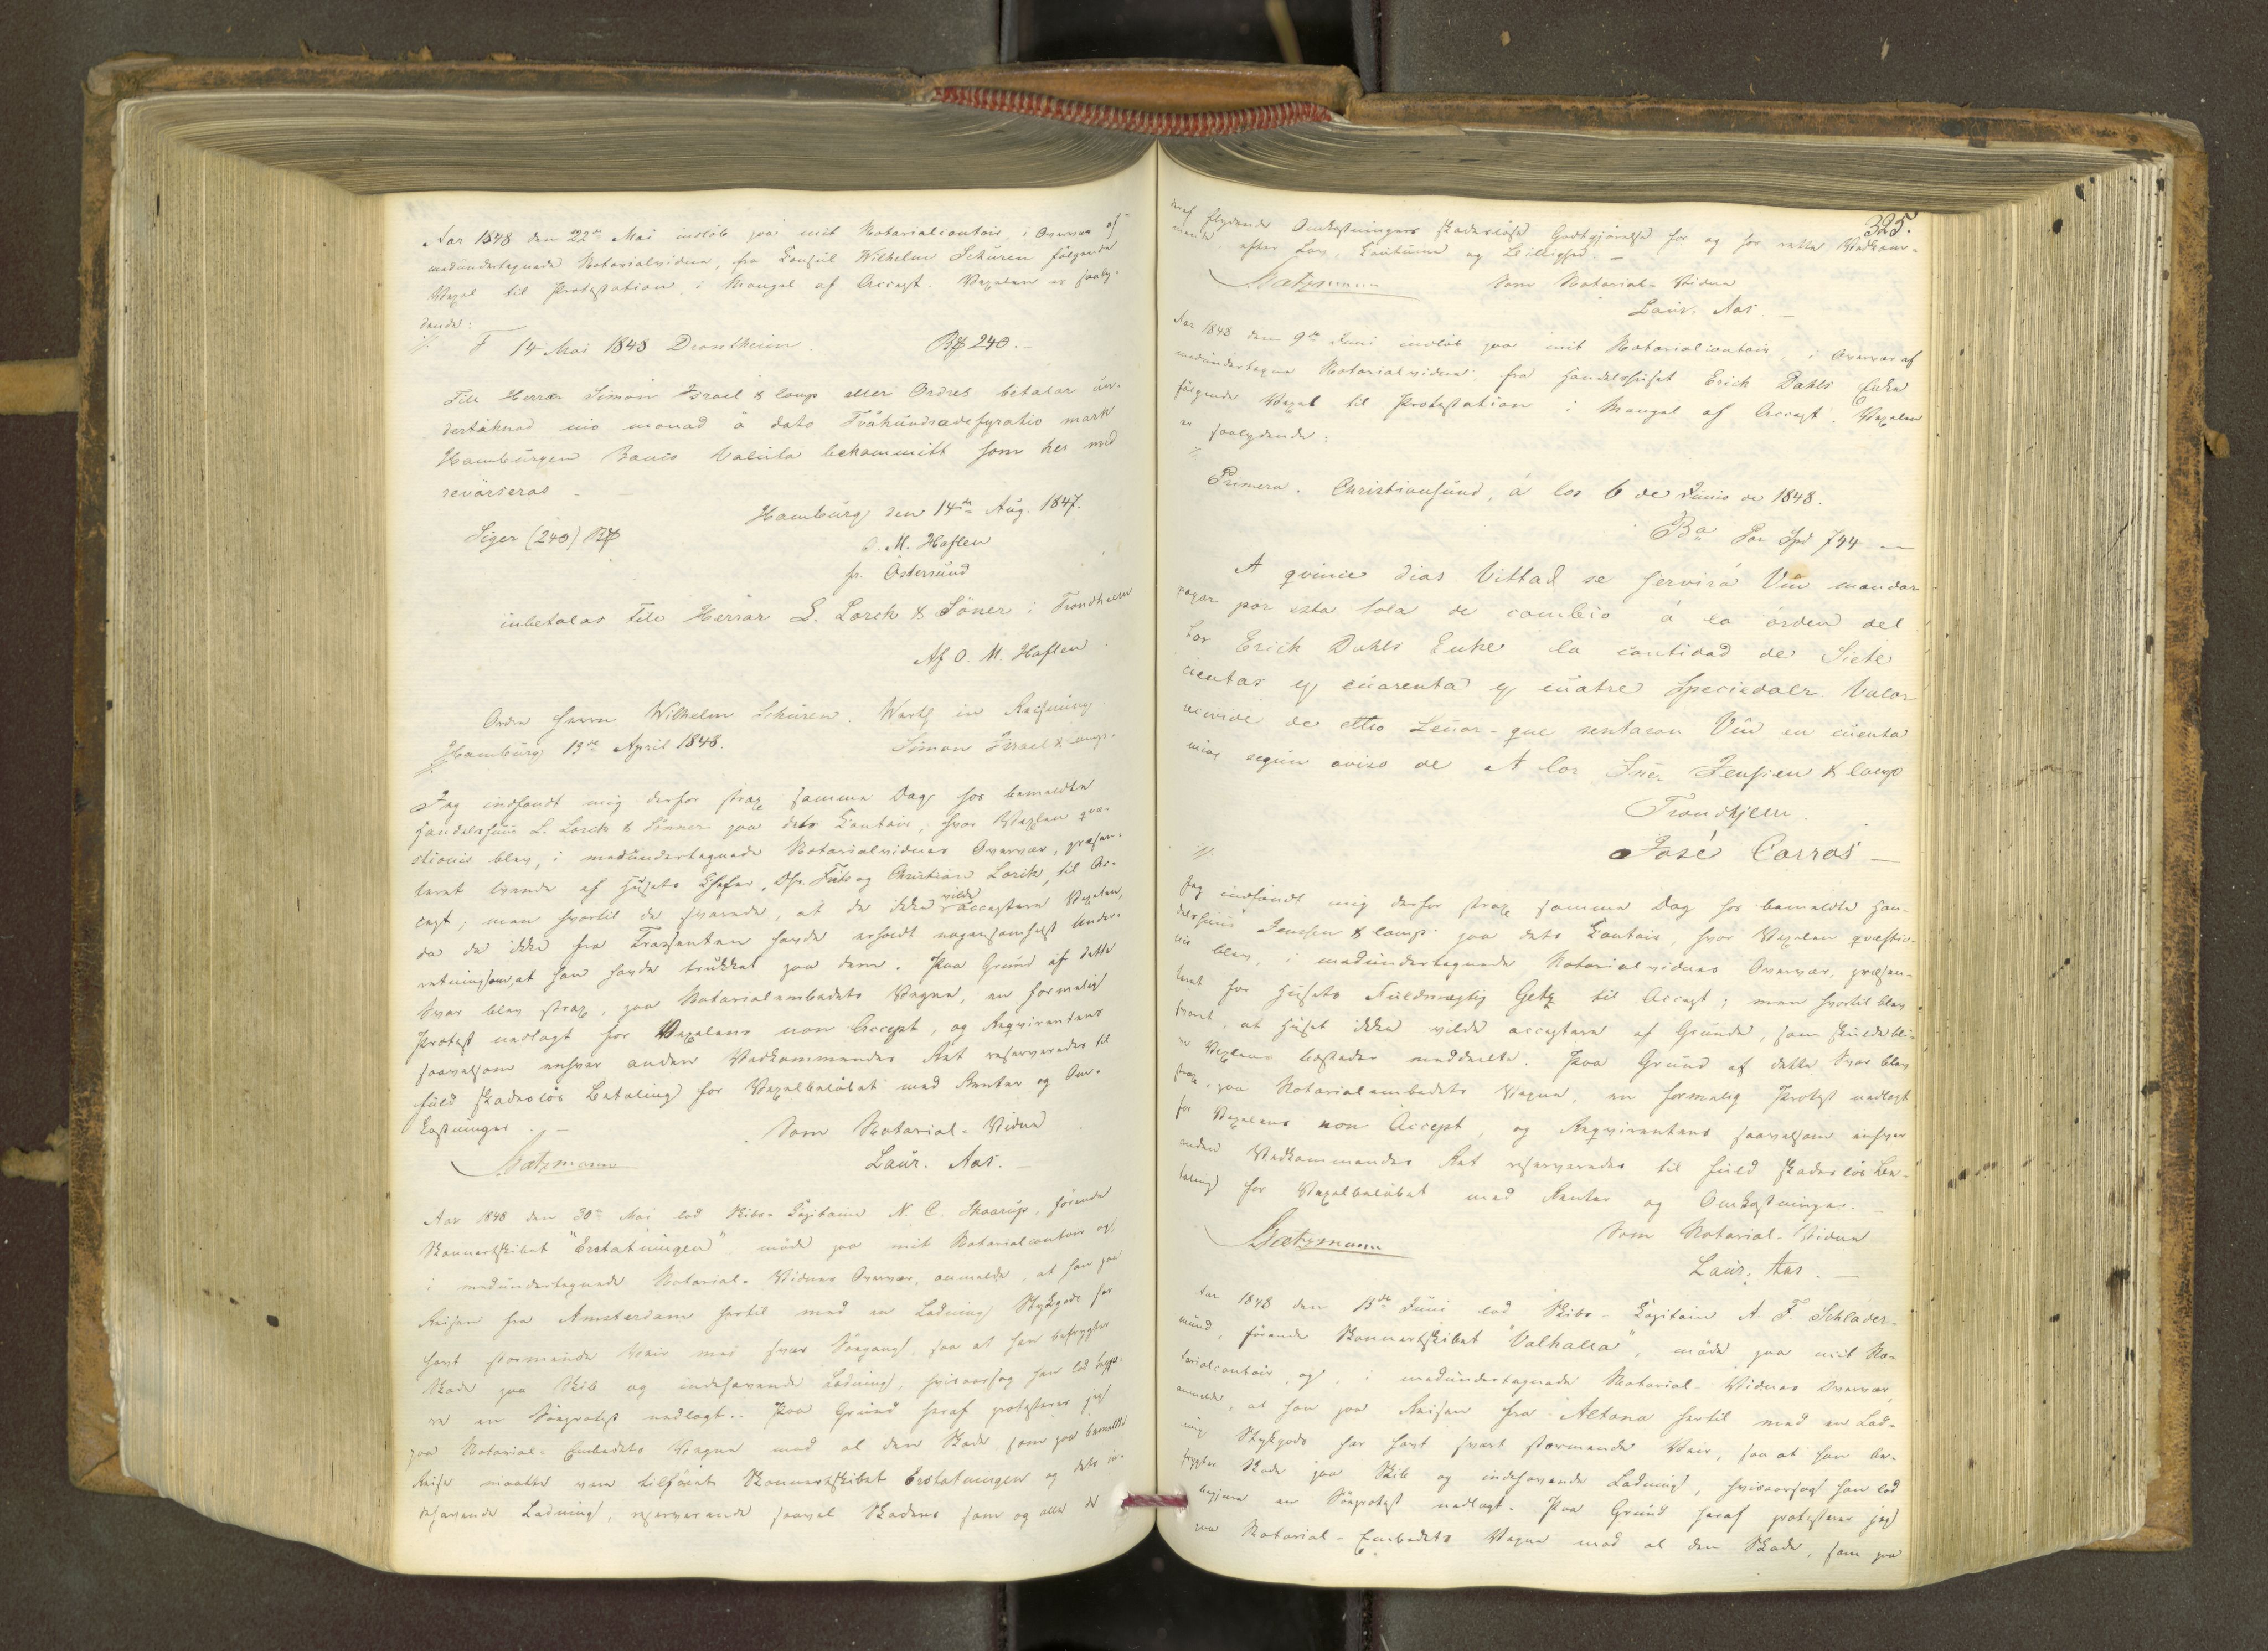 Aar 1848 den 22de Mai indløb paa mit Notarialcontoir, i Overvær af
medundertegnede Notarialvidne, fra Consul Wilhelm Schüren følgende
Vexel til Protestation i Mangel af Accept. Vexelen er saaly-
dende:
F 14 Mai 1848 Drontheim. B 240.-
Till Herrar Simon Israel & Comp eller Ordres betalar un-
dertäknad nio monad à dato Tvåhundradefyratio mark
Hamburgen Banco Valuta bekommitt som her med
revärseras
Hamburg den 14de Aug. 1847.
Siger (240) B
O. M. Haflen
fr. Östersund
inbetalas till Herrar L. Lorck & Söner i Trondheim
Af O. M. Haflen
Ordre Herrn Wilhelm Schüren. Werth in Rechnung.
Hamburg 13de April 1848. Simon Israel & Comp.
Jeg indfandt mig derfor strax samme Dag hos bemeldte
Handelshuus L. Lorck & Sønner paa dets Contoir, hvor Vexlen qvæ-
stionis blev, i medundertegnede Notarialvidnes Overvær, præsen-
teret begge af Husets Chefer, Dhr. Fritz og Christian Lorck, til Ac-
cept; men hvortil de svarede, at de ikke vilde acceptere Vexelen,
da de ikke fra Trassenten havde erholdt nogensomhelst Under-
retning om, at han havde trukket paa dem. Paa Grund af dette
Svar blev strax, paa Notarialembedets Vegne, en formelig
Protest nedlagt for Vexelens non Accept, og Reqvirentens
saavelsom enhver anden Vedkommendes Ret reserveredes til
fuld skadesløs Betaling for Vexelbeløbet med Renter og Om-
kostninger. -
Som Notarial-Vidne
Matzmann Laur. Aas. -
Aar 1848 den 30te Mai lod Skibs-Capitain N. C. Skaarup, førende
Skonnertskibet "Erstatningen", møde paa mit Notarialcontoir og,
i medundertegnede Notarial-Vidnes Overvær, anmelde, at han paa
Reisen fra Amsterdam hertil med en Ladning Stykgods har
havt stormende Veir med svær Søegang, saa at han befrygter
Skade paa Skib og indehavende Ladning, hvisaarsag han lod begjæ-
re en Søeprotest nedlagt. Paa Grund heraf protesterer jeg
paa Notarial-Embedets Vegne mod al den Skade, som paa bemeldte
Reise maatte være tilføiet Skonnertskibet Erstatningen og dets in-
dehavende Ladning, reserverende saavel Skadens som og alle de
325.
deraf flydende Omkostningers skadesløse Godtgjørelse for og hos rette Vedkom-
mende, efter Lov, Coutume og Billighed. -
Matzmann Som Notarial-Vidne
Laur. Aas. -
Aar 1848 den 9de Juni indløb paa mit Notarialcontoir, i Overvær af
medundertegnede Notarialvidne, fra Handelshuset Erich Dahls Enke
følgende Vexel til Protestation i Mangel af Accept. Vexelen
er saalydende:
Primera. Christiansund, á los 6 de Junio de 1848.
Ba Por Spd 744 -
A qvince dias Vittad se servirá Vm mandar
pagar por esta sola de cambio á la órden del
Sor Erich Dahls Enke la cantidad de Siete
cientas y cuarenta y cuatre Speciedalr. Valor
recivide de ditto Senor - que sentaran Vm en cuenta
mias segun aviso de A los Snrs. Jenssen & Comp
Trondhjem.
José Carras -
Jeg indfandt mig derfor strax samme Dag hos bemeldte Han-
delshuus Jenssen & Comp. paa dets Contoir, hvor Vexelen qvæstio-
nis blev, i medundertegnede Notarialvidnes Overvær, præsen-
teret for Husets Fuldmægtig Getz til Accept; men hvortil blev
svaret, at Huset ikke vilde acceptere af Grunde, som skulde bli-
ve Vexlens Udsteder meddeelte. Paa Grund af dette Svar blev
strax, paa Notarialembedets Vegne, en formelig Protest nedlagt
for Vexelens non Accept, og Reqvirentens saavelsom enhver
anden Vedkommendes Ret reserveredes til fuld skadesløs Be-
taling for Vexelbeløbet med Renter og Omkostninger.
Som Notarial-Vidne
Matzmann
Laur. Aas. -
Aar 1848 den 13de Juni lod Skibs-Capitain A. F. Schlader-
mund, førende Skonnertskibet "Valhalla", møde paa mit No-
tarialcontoir og, i medundertegnede Notarial-Vidnes Overvær,
anmelde, at han paa Reisen fra Altona hertil med en Lad-
ning Stykgods har havt svært stormende Veir, saa at han be-
frygter Skade paa Skib og indehavende Ladning, hvisaarsag han lod
begjære en Søeprotest nedlagt. Paa Grund heraf protesterer jeg
paa Notarial-Embedets Vegne mod al den Skade, som paa